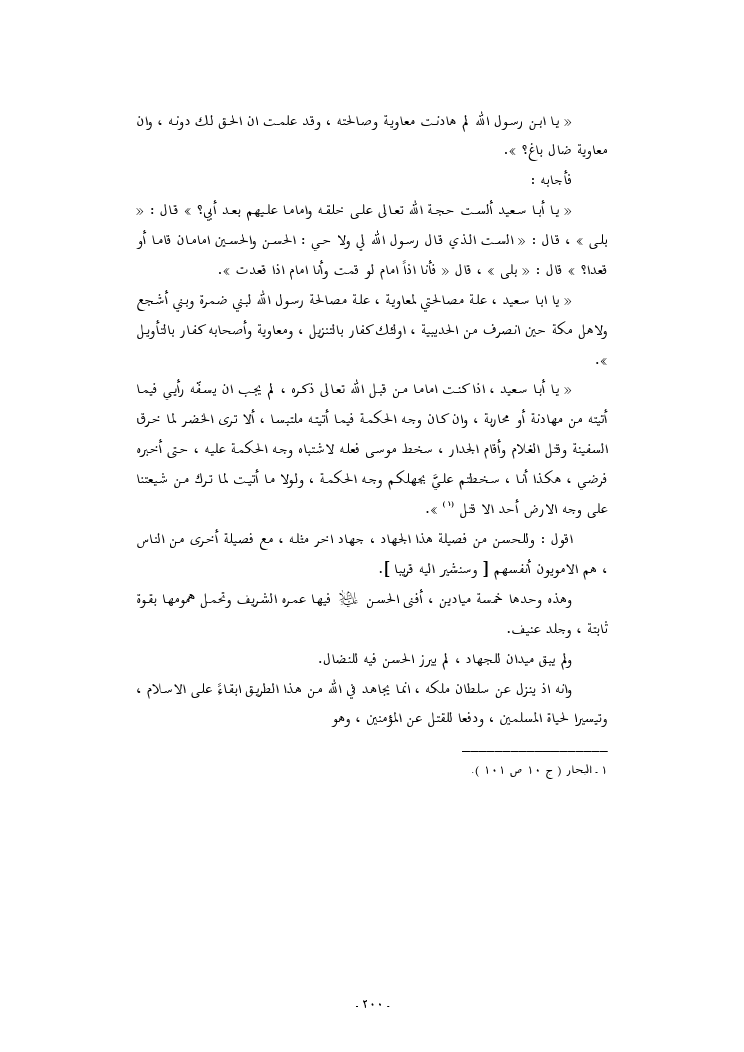 « يا ابن رسول الله لم هادنت معاوية وصالحته ، وقد علمت ان الحق لك دونه ، وان
معاوية ضال باغ؟ ».
فأجابه :
« يا أبا سعيد ألست حجة الله تعالى على خلقه واماما عليهم بعد أبي؟ » قال : «
بلى » ، قال : « الست الذي قال رسول الله لي ولا حي : الحسن والحسين امامان قاما أو
قعدا؟ » قال : « بلى » ، قال « فأنا اذاً امام لو قمت وأنا امام اذا قعدت ».
« يا ابا سعيد ، علة مصالحتي لمعاوية ، علة مصالحة رسول الله لبني ضمرة وبني أشجع
ولاهل مكة حين انصرف من الحديبية ، اولئك كفار بالتنزيل ، ومعاوية وأصحابه كفار بالتأويل
».
« يا أبا سعيد ، اذا كنت اماما من قبل الله تعالى ذكره ، لم يجب ان يسفّه رأيي فيما
أتيته من مهادنة أو محاربة ، وان كان وجه الحكمة فيما أتيته ملتبسا ، ألا ترى الخضر لما خرق
السفينة وقتل الغلام وأقام الجدار ، سخط موسى فعله لاشتباه وجه الحكمة عليه ، حتى أخبره
فرضي ، هكذا أنا ، سخطتم عليَّ بجهلكم وجه الحكمة ، ولولا ما أتيت لما ترك من شيعتنا
على وجه الارض أحد الا قتل (١) ».
اقول : وللحسن من فصيلة هذا الجهاد ، جهاد اخر مثله ، مع فصيلة أخرى من الناس
، هم الامويون أنفسهم [ وسنشير اليه قريبا ].
وهذه وحدها خمسة ميادين ، أفنى الحسن عليه‌السلام فيها عمره الشريف وتحمل همومها بقوة
ثابتة ، وجلد عنيف.
ولم يبق ميدان للجهاد ، لم يبرز الحسن فيه للنضال.
وانه اذ ينزل عن سلطان ملكه ، انما يجاهد في الله من هذا الطريق ابقاءً على الاسلام ،
وتيسيرا لحياة المسلمين ، ودفعا للقتل عن المؤمنين ، وهو
١ ـ البحار ( ج ١٠ ص ١٠١ ).
ـ ٢٠٠ ـ